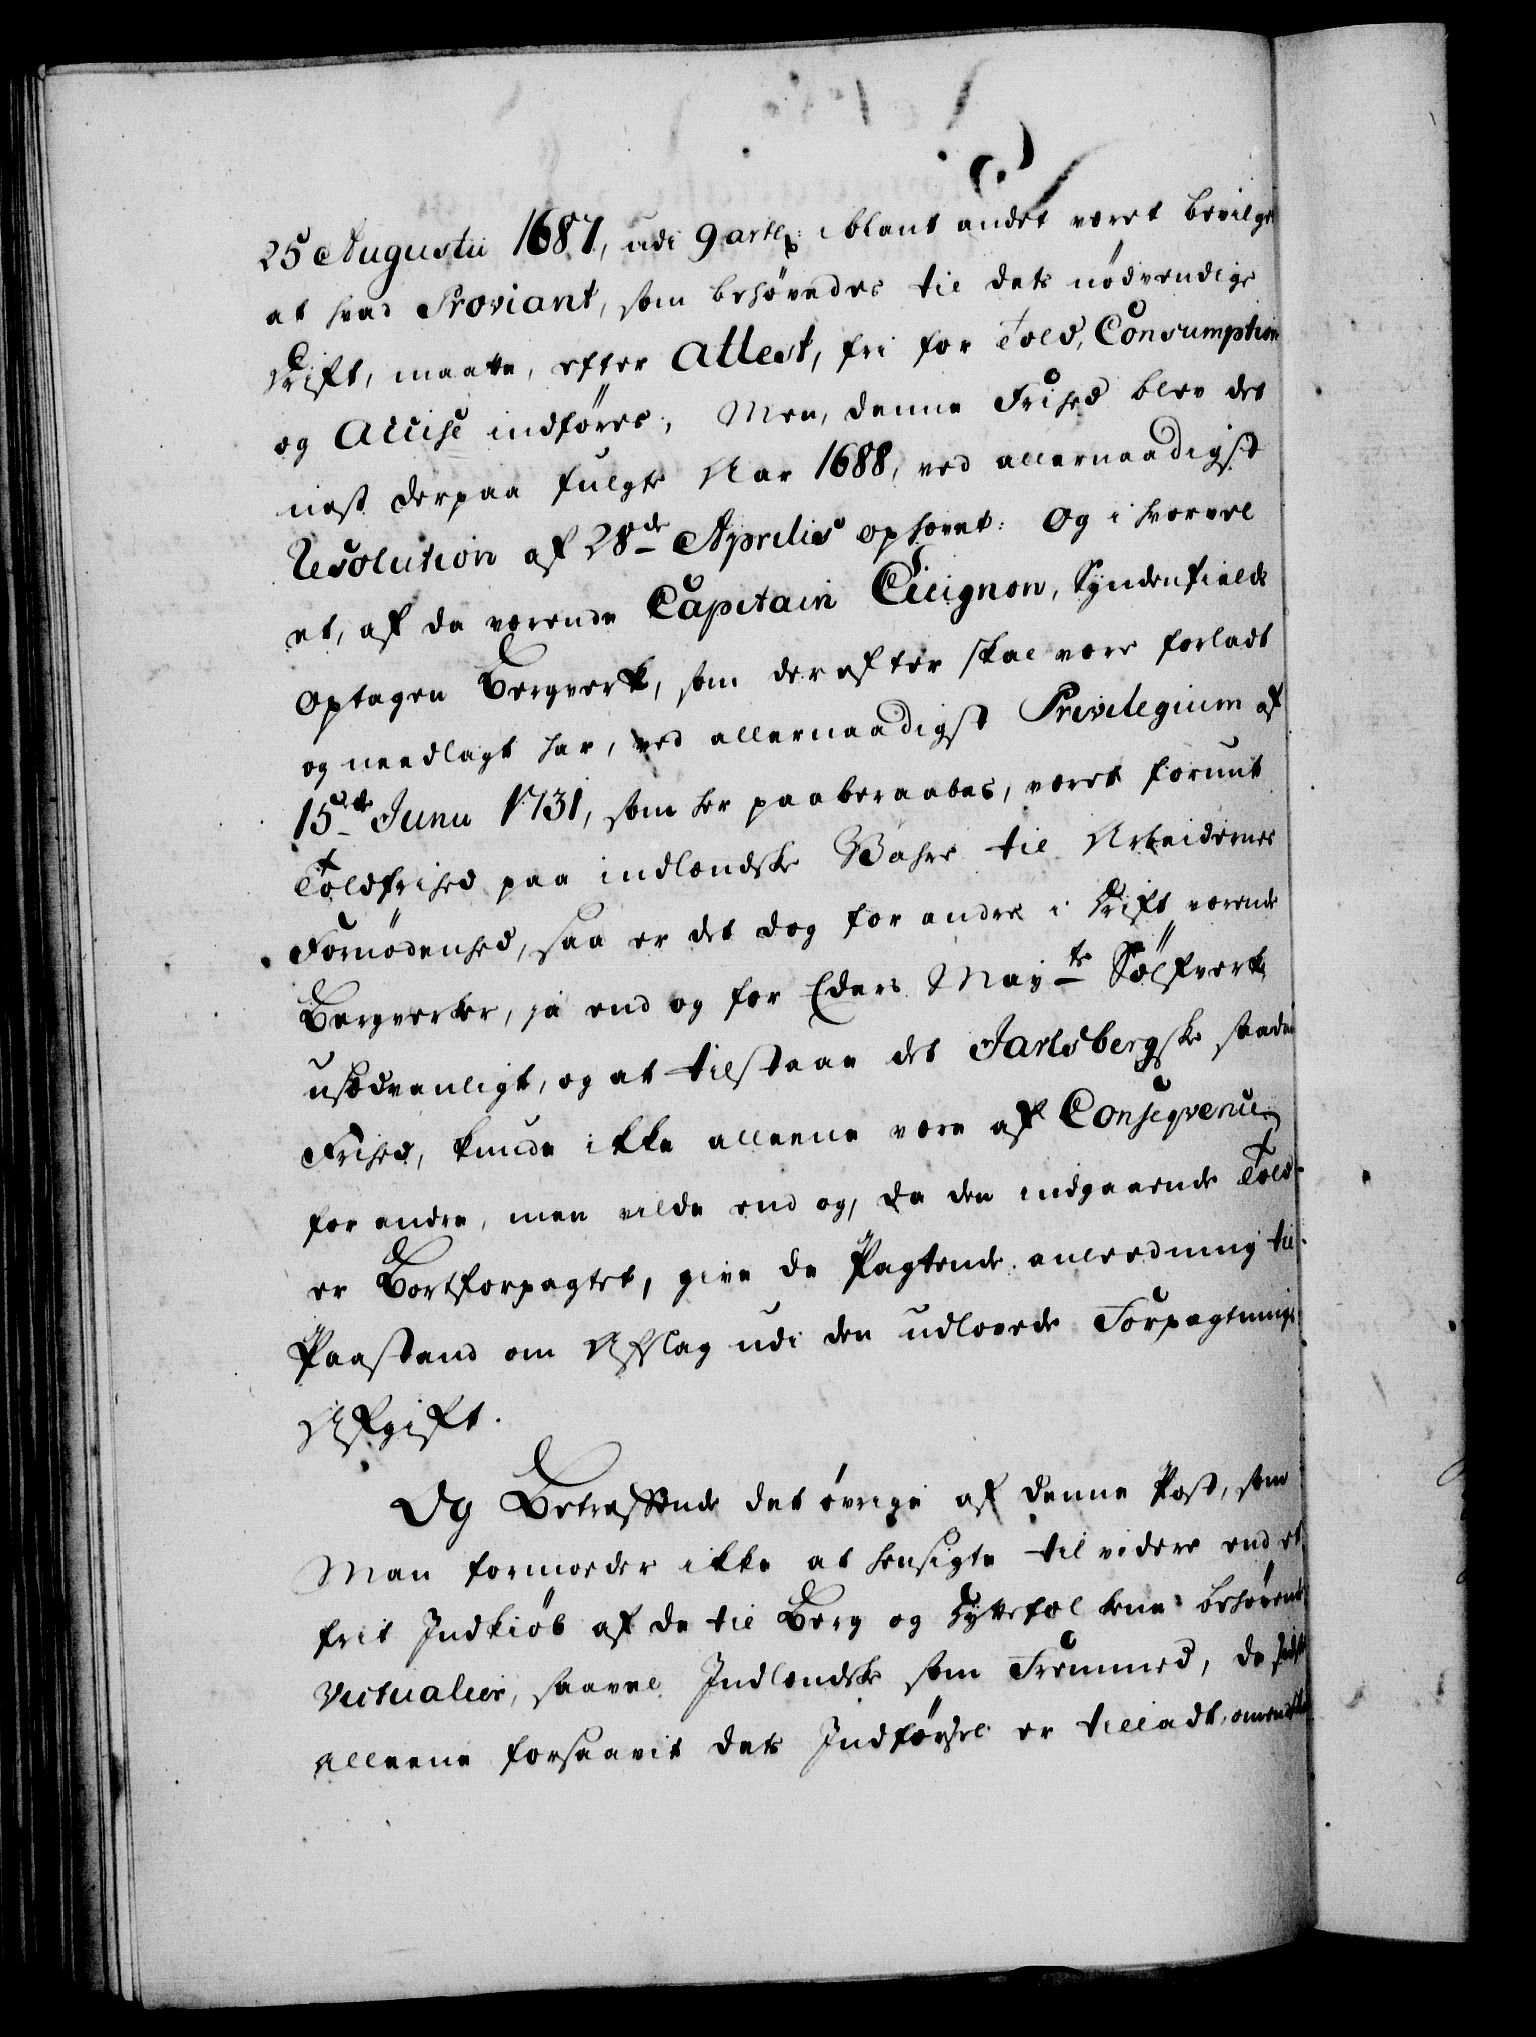 25 Augustii 1687, udi 9 artl: iblant andet været bevilget
at hvad Proviant, som behøvedes til dets nødvendige
Drift, maatte, efter Attest, fri for Told, Consumption
og Accise indføres; Men, denne Frihed blev det
nest derpaa fulgte Aar 1688, ved allernaadigst
Resolution af 28de Aprilis ophævet: Og ihvorvel
et, af da værende Capitain Cicignon, Syndenfields
optagen Bergverk, som derefter skal være forladt
og needlagt har, ved allernaadigst Privilegium af
15de Junii 1731, som her paaberaabes, været forunt
Toldfrihed paa indlændske Wahre til Arbeidernes
Fornødenhed, saa er det dog for andre i Drift værende
Bergverker, ja end og for Eders Mayts Sølfverk
usædvanligt, og at tilstaae det Jarlsbergske saadan
Frihed, kunde ikke alleene være af Conseqvence
for andre, men vilde end og, da den indgaaende Told
er Bortforpagtet, give de Pagtende anleedning til
Paastand om Afslag udi den udlovede Forpagtnings
Afgift.
Og Betreffende det øvrige af denne Post, som
Man formoder ikke at hensigte til videre end et
frit Indkiøb af de til Berg og Hyttefolkene behøvende
Victualier, saavel Indlændske som Fremmed, de sidste
alleene forsaavit dets Indførsel er tilladt,